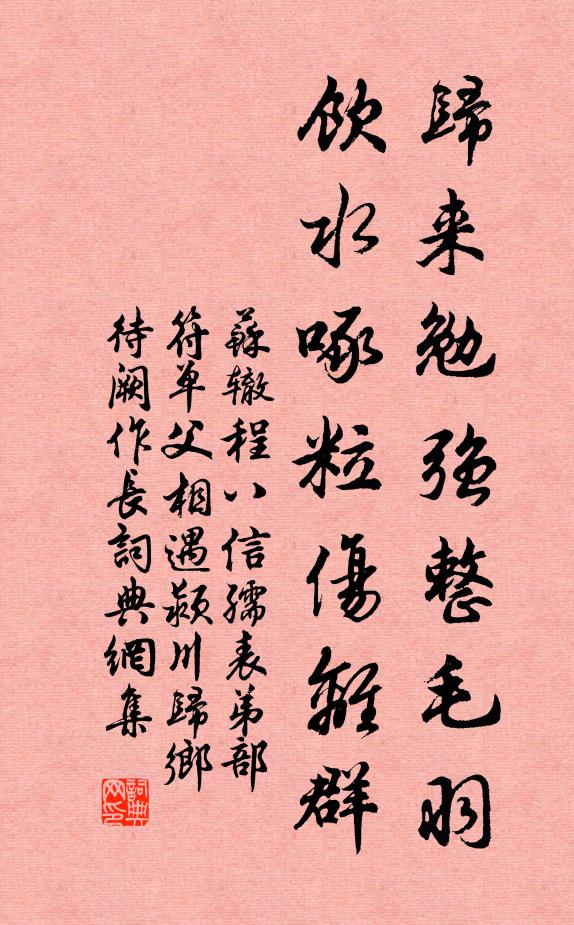 歸来勉強整毛羽
飲水啄粒傷離群
蘇轍程八信孺表弟部
符單父相遇潁川歸鄉
待闕作長詞典網集
詞典網印